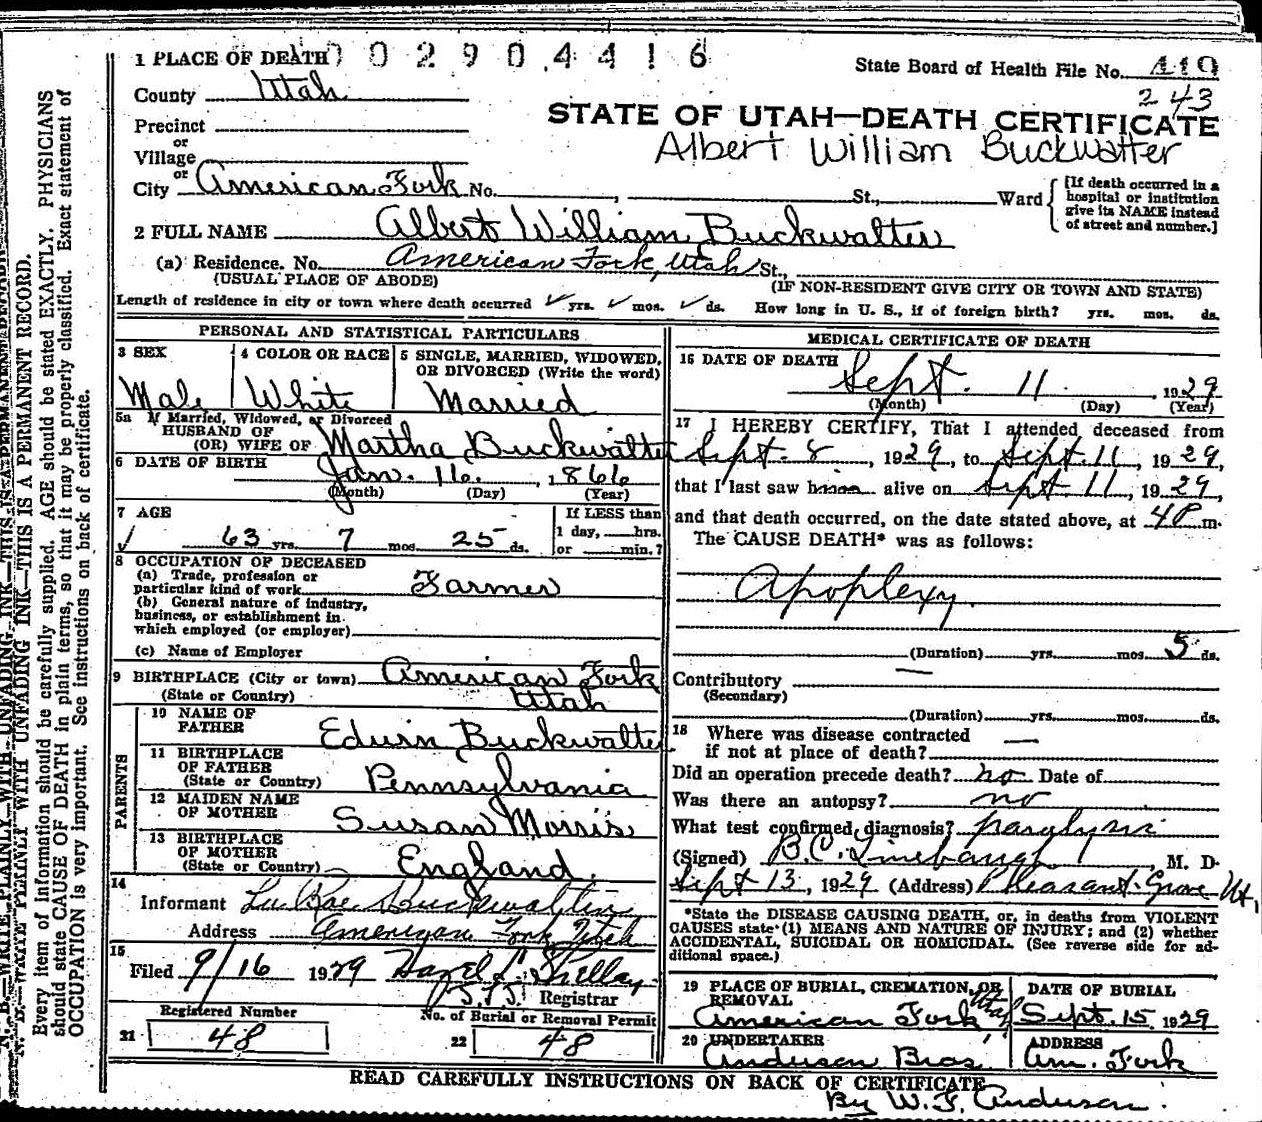 1 PLACE OF DEATH 0 0 2 9 0 4 4 1 6
State Board of Health File No. 419
243
County Utah
STATE OF UTAH—DEATH CERTIFICATE
Precinct
or
Albert William Buckwalter
Village
or
City American Fork No. , St., Ward
[If death occurred in a
hospital or institution
give its NAME instead
of street and number.]
2 FULL NAME Albert William Buckwalter
(a) Residence. No. American Fork, Utah St.,
(USUAL PLACE OF ABODE) (IF NON-RESIDENT GIVE CITY OR TOWN AND STATE)
Length of residence in city or town where death occurred ✓ yrs. ✓ mos. ✓ ds. How long in U. S., if of foreign birth? yrs. mos. ds.
PERSONAL AND STATISTICAL PARTICULARS
3 SEX
Male
4 COLOR OR RACE
White
5 SINGLE, MARRIED, WIDOWED,
OR DIVORCED (Write the word)
Married
5a If Married, Widowed, or Divorced
HUSBAND OF
(OR) WIFE OF Martha Buckwalter
6 DATE OF BIRTH Jan. 16. , 1866
(Month) (Day) (Year)
7 AGE
✓ 63 yrs. 7 mos. 25 ds.
If LESS than
1 day, hrs.
or min.?
8 OCCUPATION OF DECEASED
(a) Trade, profession or
particular kind of work Farmer
(b) General nature of industry,
business, or establishment in
which employed (or employer)
(c) Name of Employer
9 BIRTHPLACE (City or town) American Fork
(State or Country) Utah
PARENTS
10 NAME OF
FATHER Edwin Buckwalter
11 BIRTHPLACE
OF FATHER
(State or Country) Pennsylvania
12 MAIDEN NAME
OF MOTHER Susan Morris
13 BIRTHPLACE
OF MOTHER
(State or Country) England.
14
Informant La Rae Buckwalter
Address American Fork, Utah
15
Filed 9/16 1929 Hazel L. Shelley
Registrar
Registered Number
21 48
No. of Burial or Removal Permit
22 48
MEDICAL CERTIFICATE OF DEATH
16 DATE OF DEATH
Sept. 11 1929
(Month) (Day) (Year)
17 I HEREBY CERTIFY, That I attended deceased from
Sept. 8 , 1929, to Sept. 11, 1929,
that I last saw him alive on Sept. 11, 1929,
and that death occurred, on the date stated above, at 4P m.
The CAUSE DEATH* was as follows:
Apoplexy.
(Duration) yrs. mos. 5 ds.
Contributory —
(Secondary)
(Duration) yrs. mos. ds.
18 Where was disease contracted
if not at place of death? —
Did an operation precede death? no Date of
Was there an autopsy? no
What test confirmed diagnosis? paralysis
(Signed) B.C. Linebaugh, M. D.
Sept 13, 1929 (Address) Pleasant Grove Ut.
*State the DISEASE CAUSING DEATH, or, in deaths from VIOLENT
CAUSES state (1) MEANS AND NATURE OF INJURY; and (2) whether
ACCIDENTAL, SUICIDAL OR HOMICIDAL. (See reverse side for ad-
ditional space.)
19 PLACE OF BURIAL, CREMATION, OR
REMOVAL
American Fork, Utah
DATE OF BURIAL
Sept. 15 1929
20 UNDERTAKER
Anderson Bros.
ADDRESS
Am. Fork
READ CAREFULLY INSTRUCTIONS ON BACK OF CERTIFICATE
By W. J. Anderson.
N. B.—WRITE PLAINLY WITH UNFADING INK—THIS IS A PERMANENT RECORD.
Every item of information should be carefully supplied. AGE should be stated EXACTLY. PHYSICIANS
should state CAUSE OF DEATH in plain terms, so that it may be properly classified. Exact statement of
OCCUPATION is very important. See instructions on back of certificate.